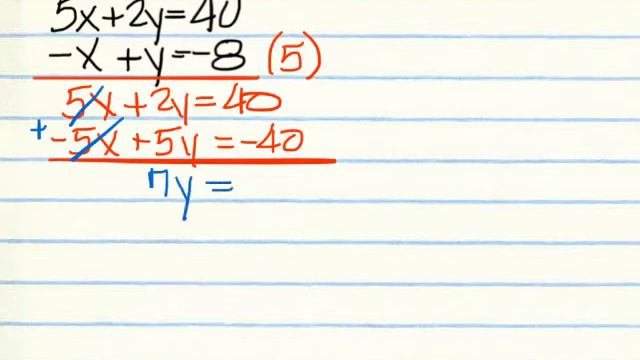 5x+2y=40
-x+y=-8 (5)
5x+2y=40
+ -5x+5y=-40
7y=